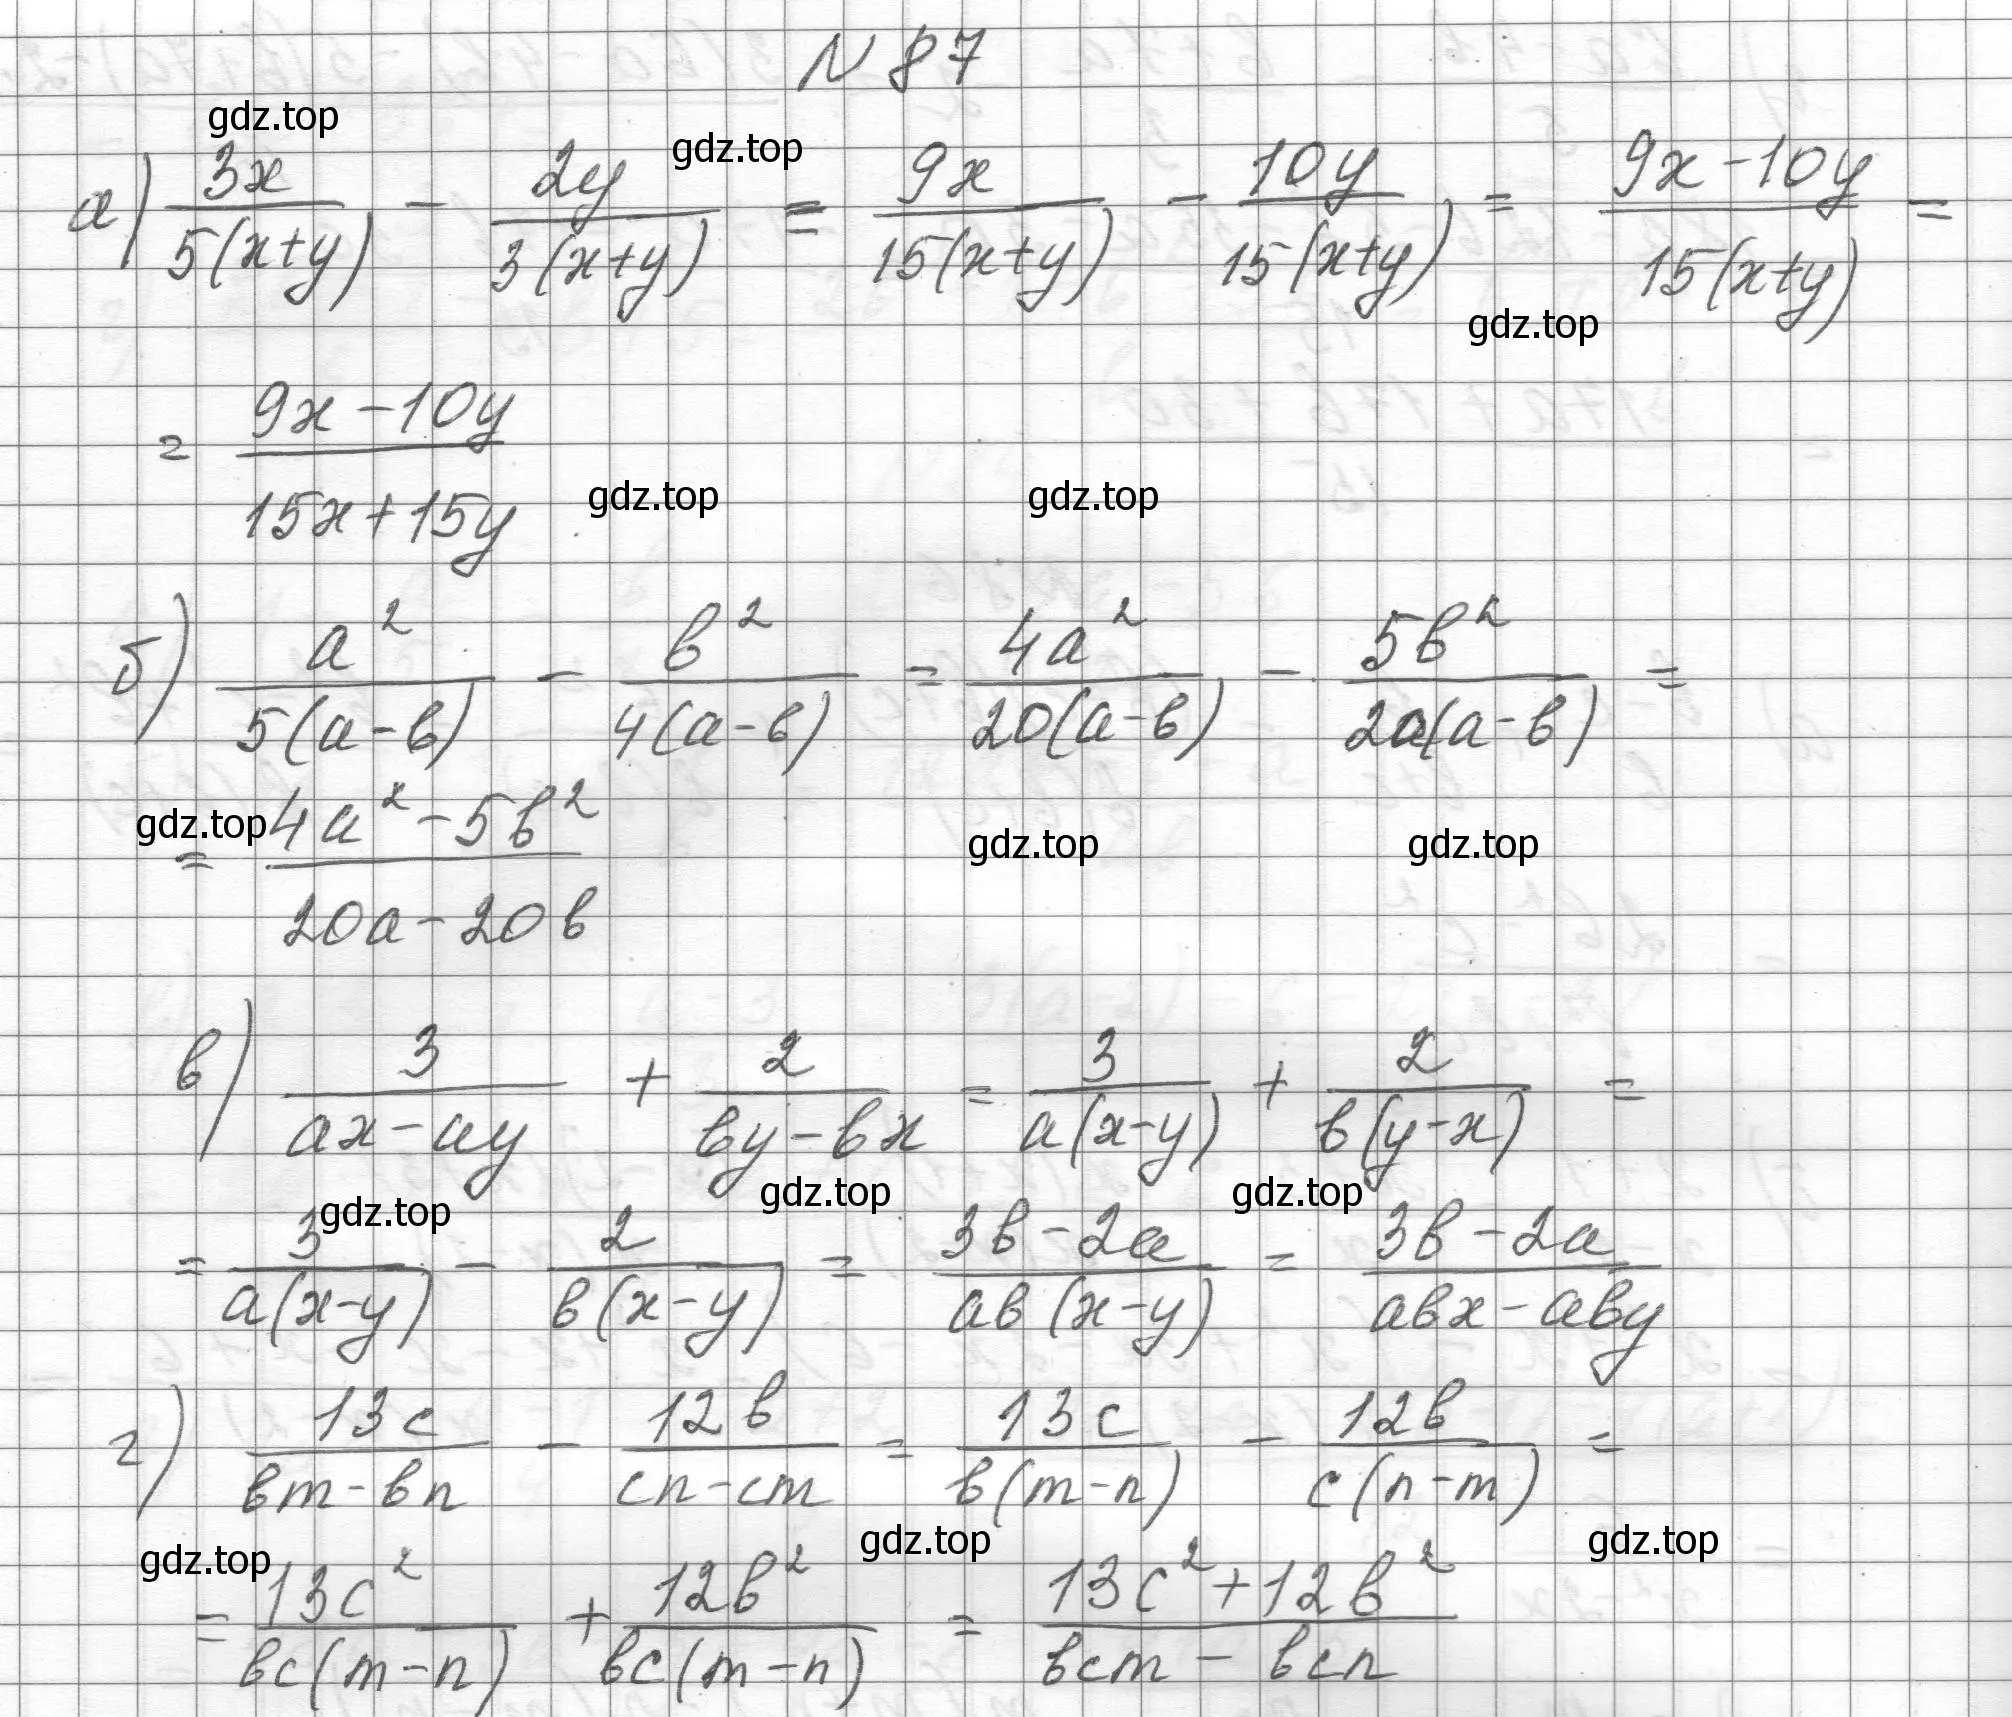 N 87
gdz.top
gdz.top
а) 3x/5(x+y) - 2y/3(x+y) = 9x/15(x+y) - 10y/15(x+y) = 9x-10y/15(x+y) =
gdz.top
= 9x-10y/15x+15y
gdz.top gdz.top
б) a²/5(a-b) - b²/4(a-b) = 4a²/20(a-b) - 5b²/20(a-b) =
gdz.top gdz.top gdz.top
= 4a²-5b²/20a-20b
в) 3/ax-ay + 2/by-bx = 3/a(x-y) + 2/b(y-x) =
gdz.top gdz.top gdz.top
= 3/a(x-y) - 2/b(x-y) = 3b-2a/ab(x-y) = 3b-2a/abx-aby
г) 13c/bm-bn - 12b/cn-cm = 13c/b(m-n) - 12b/c(n-m) =
gdz.top gdz.top gdz.top
= 13c²/bc(m-n) + 12b²/bc(m-n) = 13c²+12b²/bcm-bcn